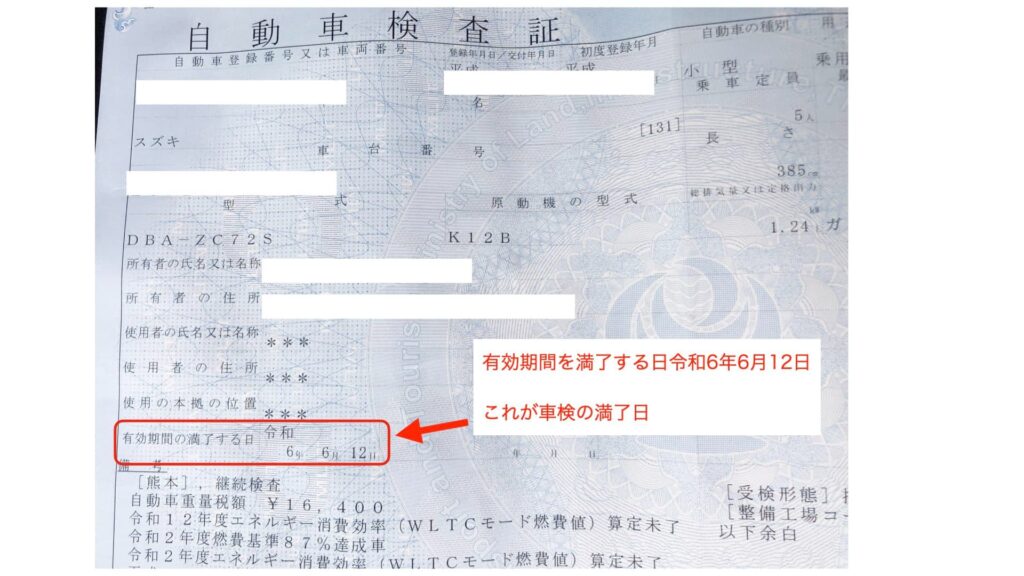 自動車検査証
自動車登録番号又は車両番号
登録年月日／交付年月日
初度登録年月
自動車の種別
用
平成
平成
小型
乗用
乗車定員
最
名
[131]
5人
スズキ
長さ
車台番号
385
総排気量又は定格出力
型式
原動機の型式
kW
1.24
ガ
DBA-ZC72S
K12B
所有者の氏名又は名称
所有者の住所
使用者の氏名又は名称
＊＊＊
使用者の住所
＊＊＊
使用の本拠の位置
＊＊＊
有効期間を満了する日令和6年6月12日
これが車検の満了日
有効期間の満了する日
令和
6年 6月 12日
年 月 日
備考
[熊本]，継続検査
自動車重量税額 ￥16，400
令和12年度エネルギー消費効率（WLTCモード燃費値）算定未了
令和2年度燃費基準87％達成車
令和2年度エネルギー消費効率（WLTCモード燃費値）算定未了
[受検形態]
[整備工場コー
以下余白